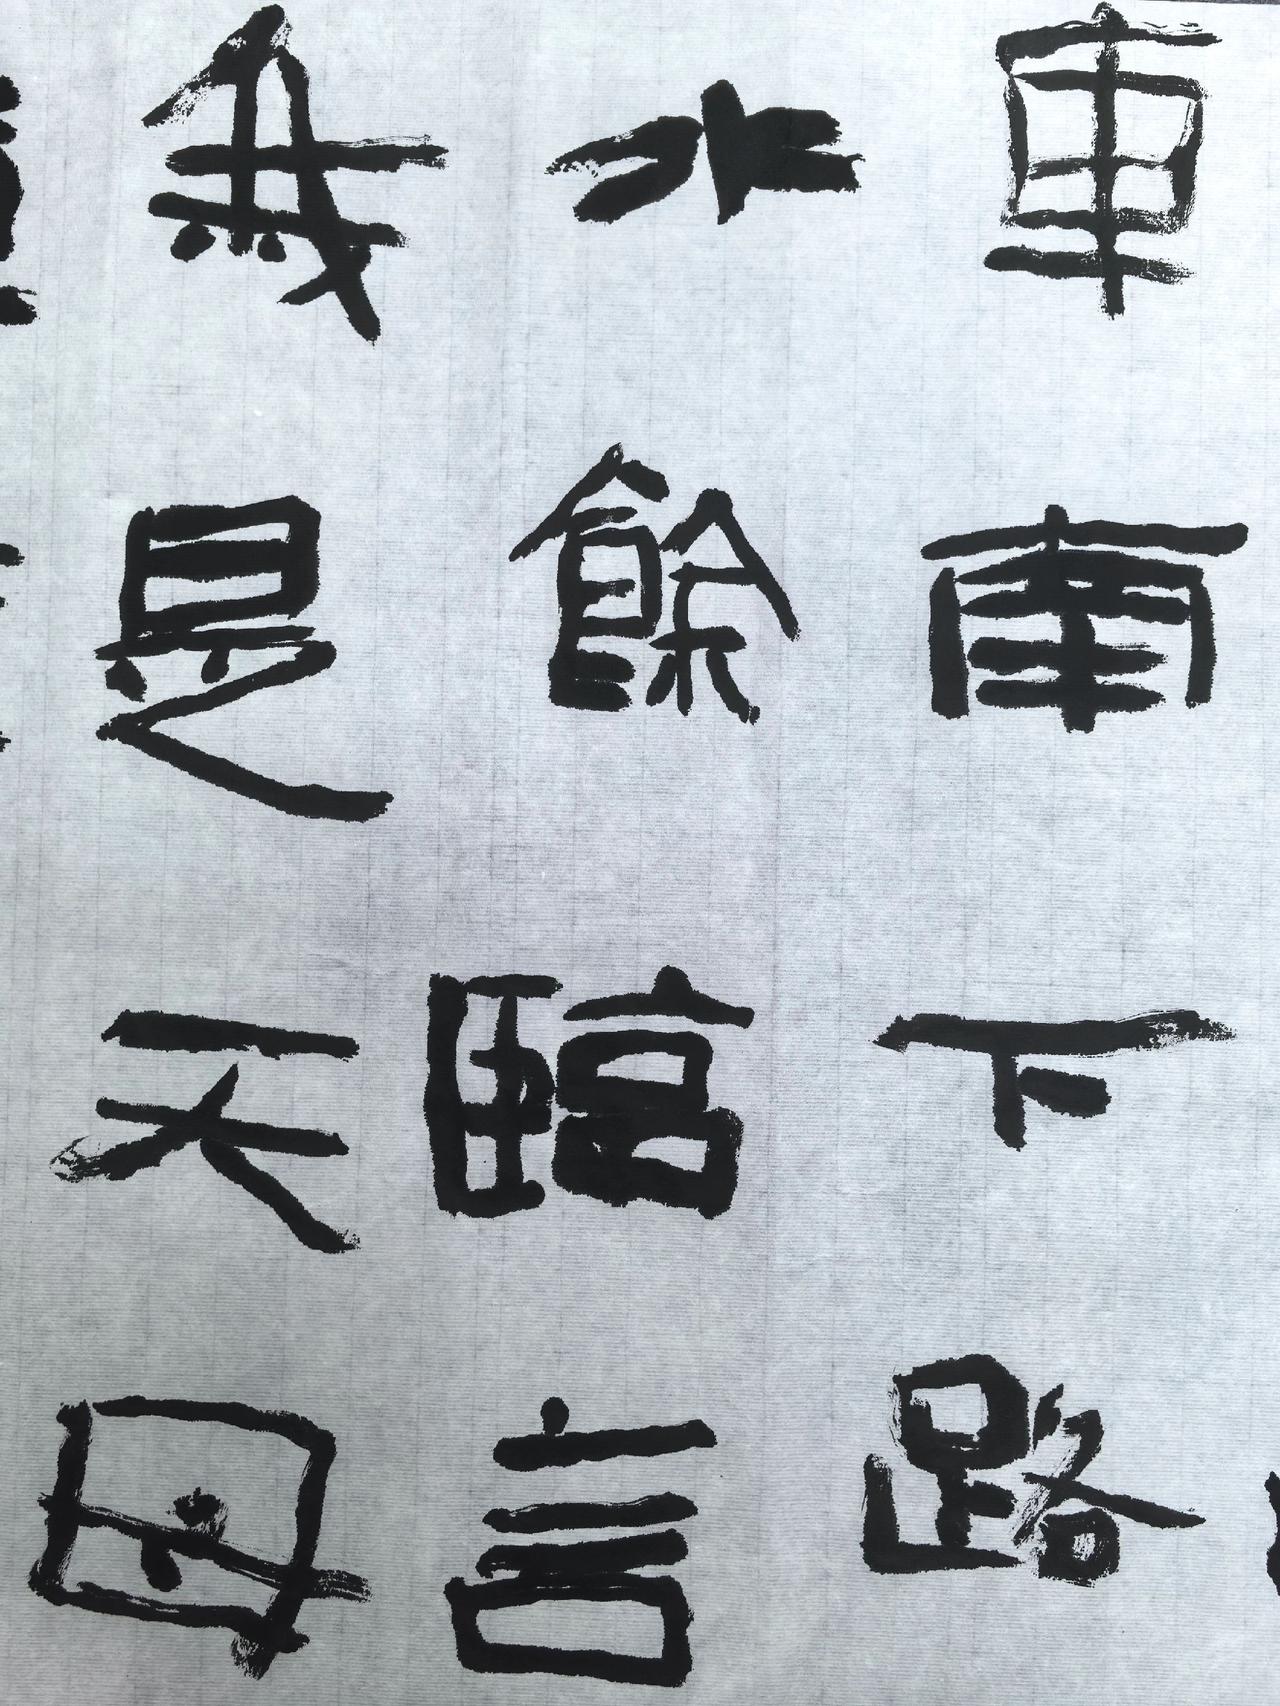 車南下路
水餘臨言
我是天母